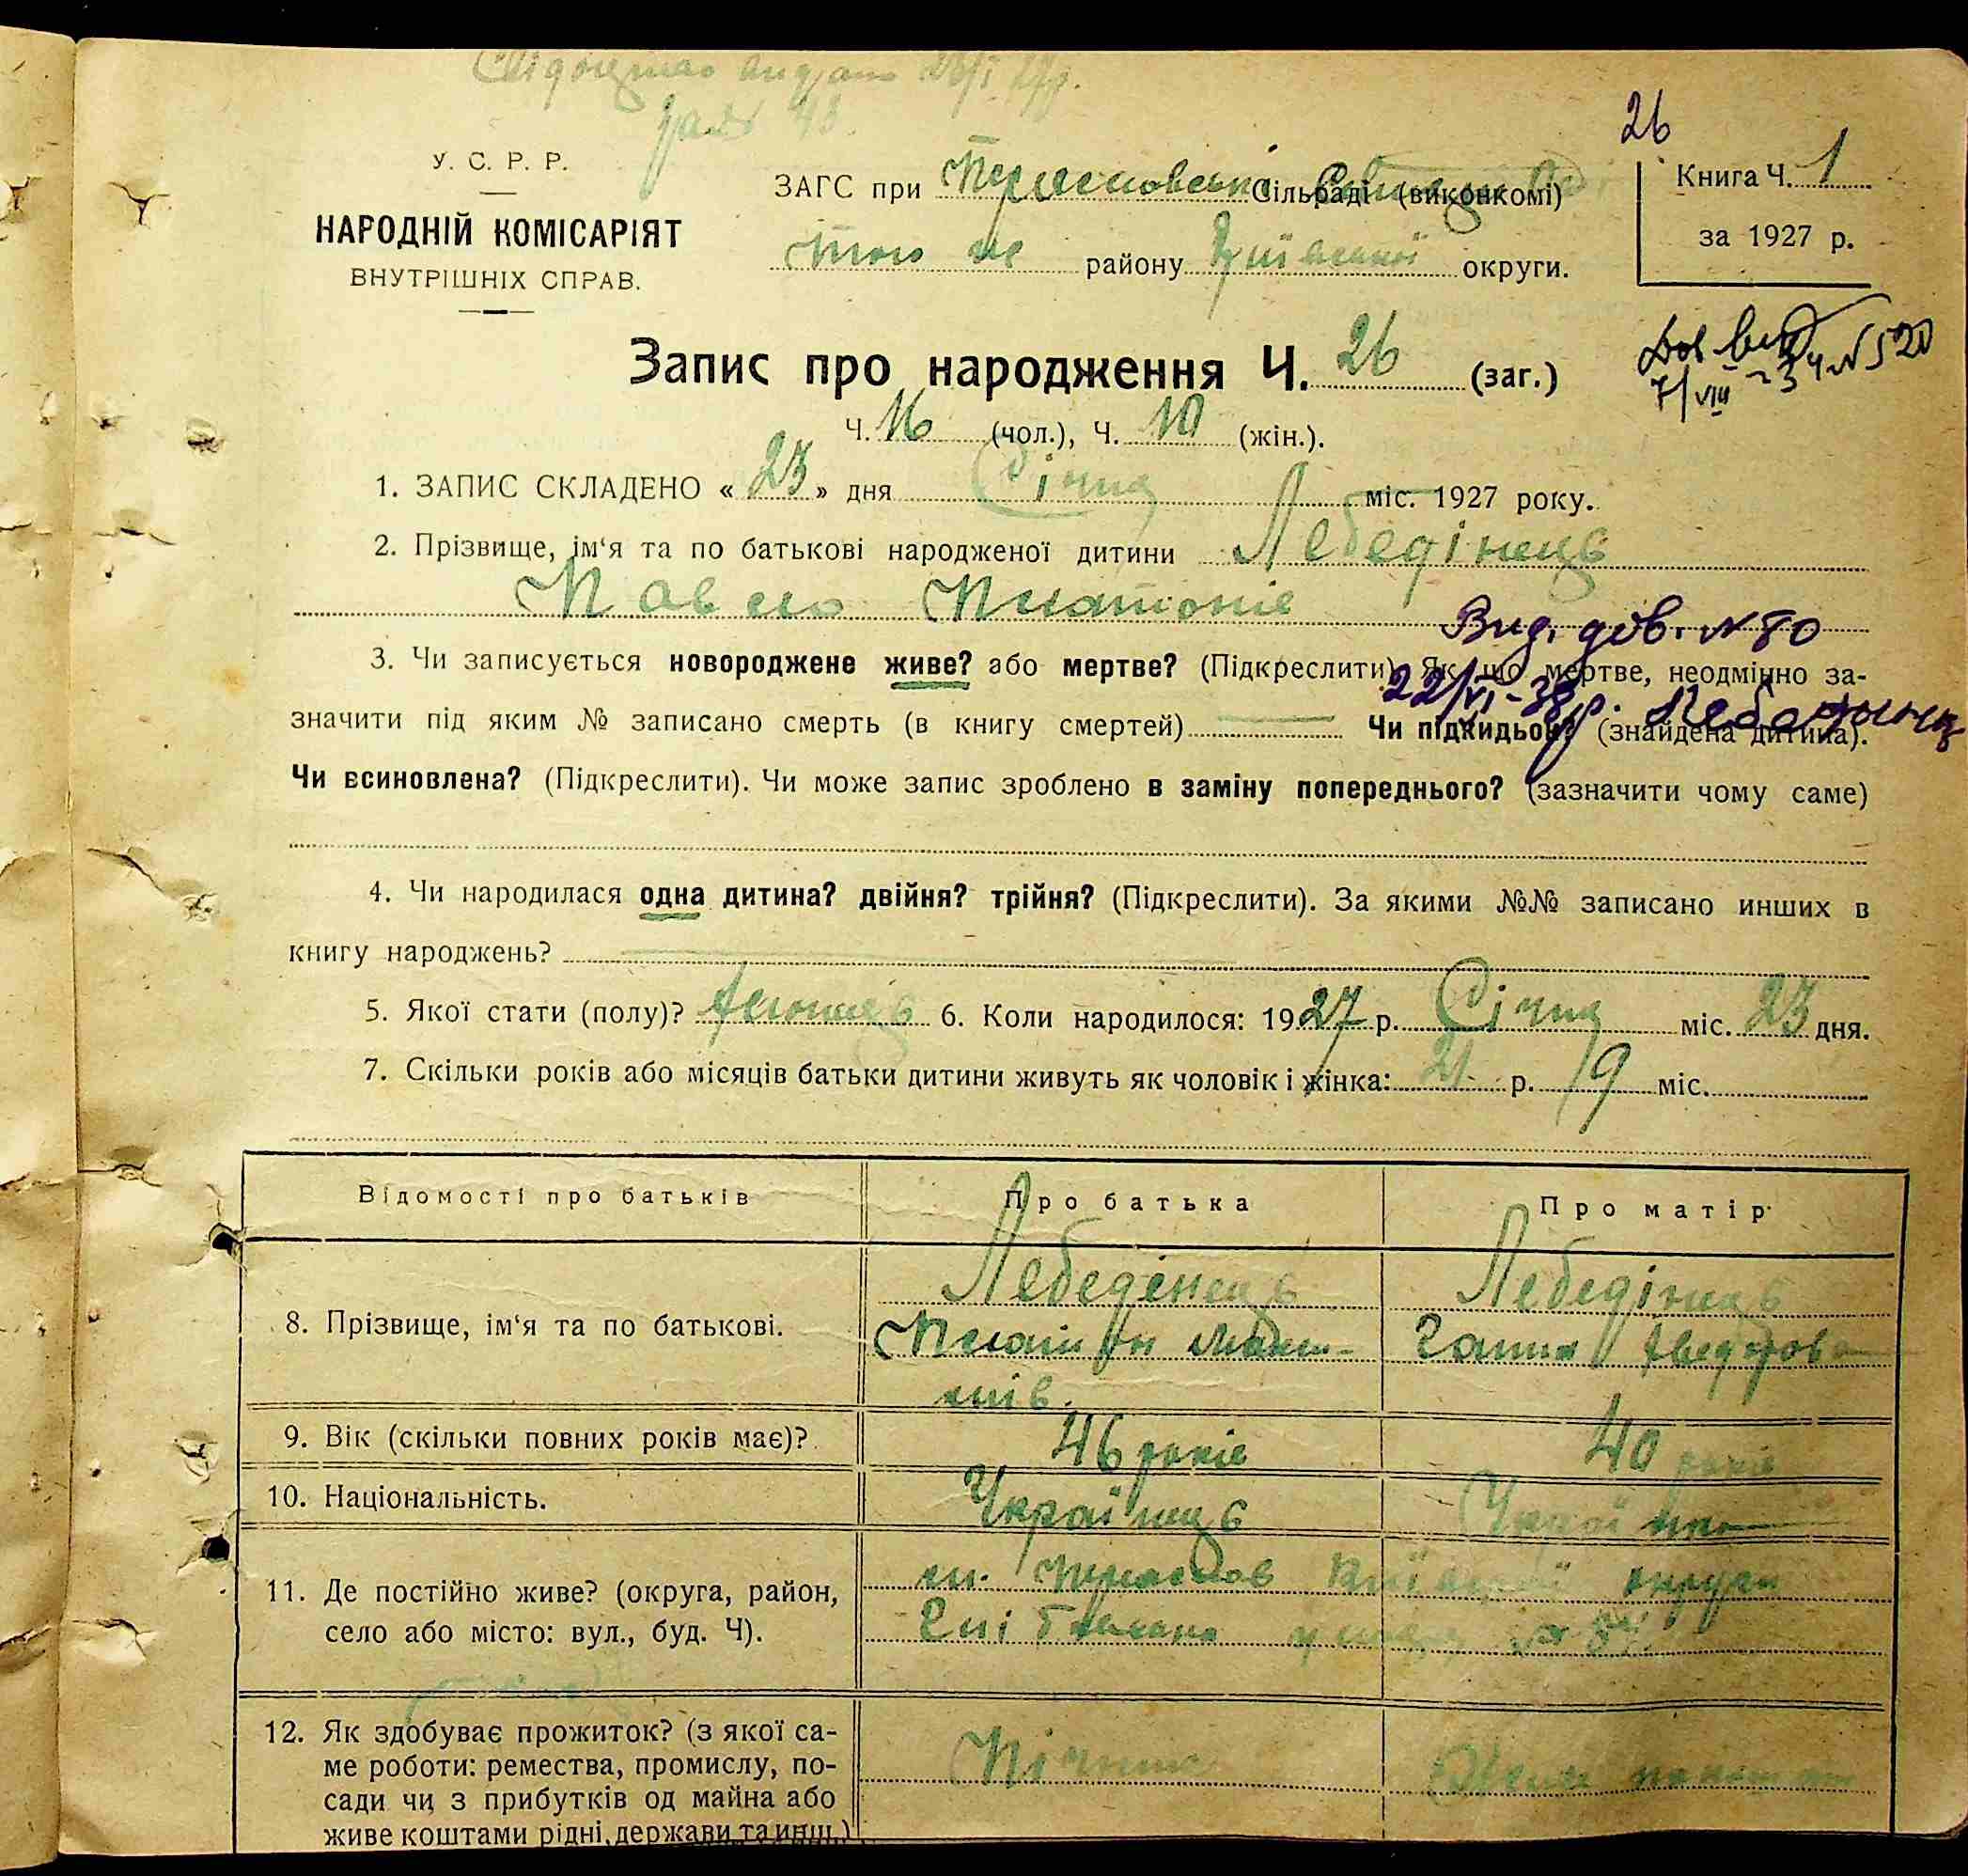 26
У. С. Р. Р.
НАРОДНІЙ КОМІСАРІЯТ
ВНУТРІШНІХ СПРАВ.
ЗАГС при Сільраді (виконкомі)
того же району Київської округи.
Книга Ч. 1
за 1927 р.
Запис про народження Ч. 26 (заг.)
7/VIII-34 N 520
Ч. 16 (чол.), Ч. 10 (жін.).
1. ЗАПИС СКЛАДЕНО « 23 » дня Січня міс. 1927 року.
2. Прізвище, ім‘я та по батькові народженої дитини Лебедінець
Павло Платонів
Вид. дов. N 80
3. Чи записується новороджене живе? або мертве? (Підкреслити). Якщо мертве, неодмінно за-
22/VI-38р. Лебединец
значити під яким № записано смерть (в книгу смертей) Чи підкидьок? (знайдена дитина).
Чи всиновлена? (Підкреслити). Чи може запис зроблено в заміну попереднього? (зазначити чому саме)
4. Чи народилася одна дитина? двійня? трійня? (Підкреслити). За якими №№ записано инших в
книгу народжень?
5. Якої стати (полу)? 6. Коли народилося: 1927 р. Січня міс. 23 дня.
7. Скільки років або місяців батьки дитини живуть як чоловік і жінка: 21 р. 9 міс.
Відомості про батьків Про батька Про матір
8. Прізвище, ім‘я та по батькові.
Лебедінець
Платон Макси-
мів.
Лебедінець
Ганна Федорова
9. Вік (скільки повних років має)? 46 років 40 років
10. Національність. Українець Українка
11. Де постійно живе? (округа, район,
село або місто: вул., буд. Ч).
м. Київської округи
12. Як здобуває прожиток? (з якої са-
ме роботи: ремества, промислу, по-
сади чи з прибутків од майна або
живе коштами рідні, держави та инш.)
Пічник